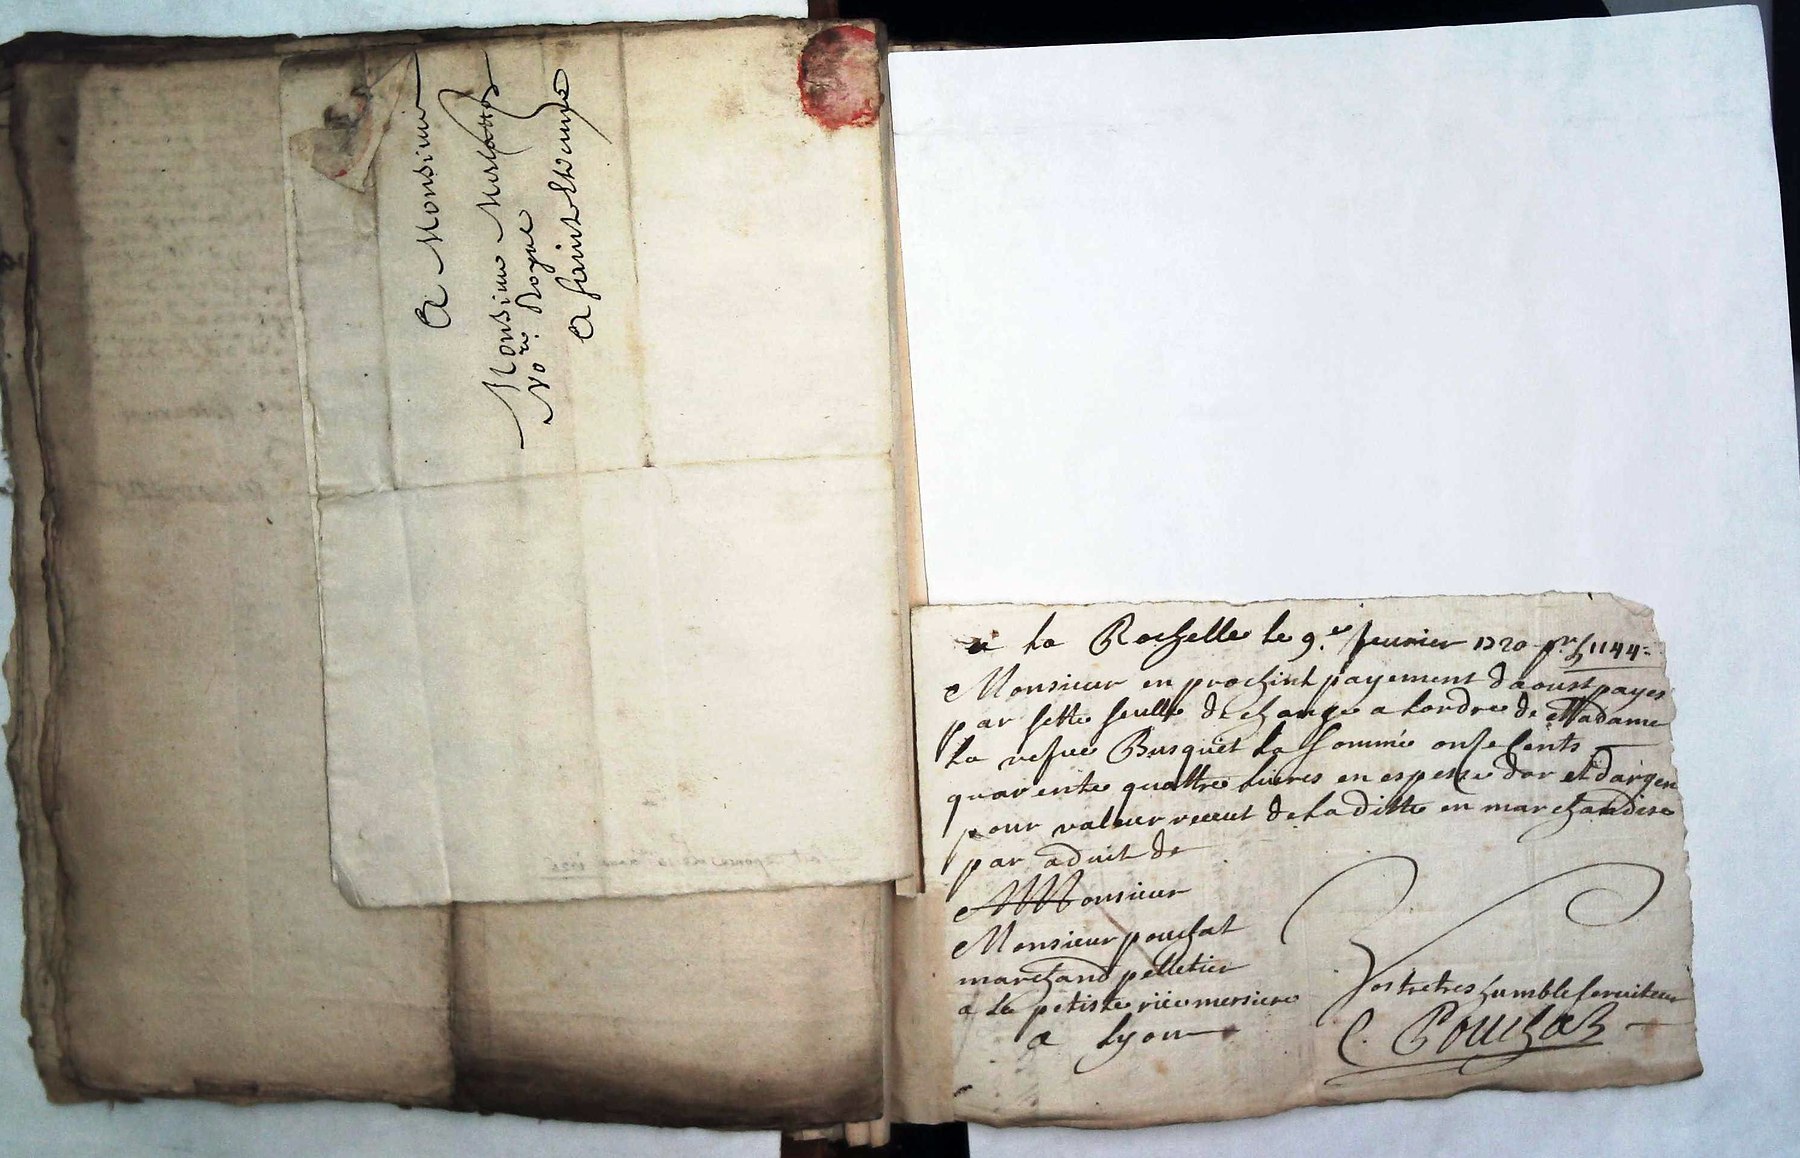 A Monsieur
Monsieur
No.re Royal
A saint
a la Rochelle le 9.e feurier 1720 pr ₶ 1144=
Monsieur en prochint payement daoust payes
par sette seulle de change a lordre de Madame
la vefue Busquet la somme onse cents
quarente quattre liures en espesse dor et dargen
pour valeur receut de la ditte en marchandise
par aduit de
Monsieur
Monsieur pouchat
marchand pelletier
a la petiste rüe mersiere
a Lyon
Vostre tres humble seruiteur
C. Pouchat